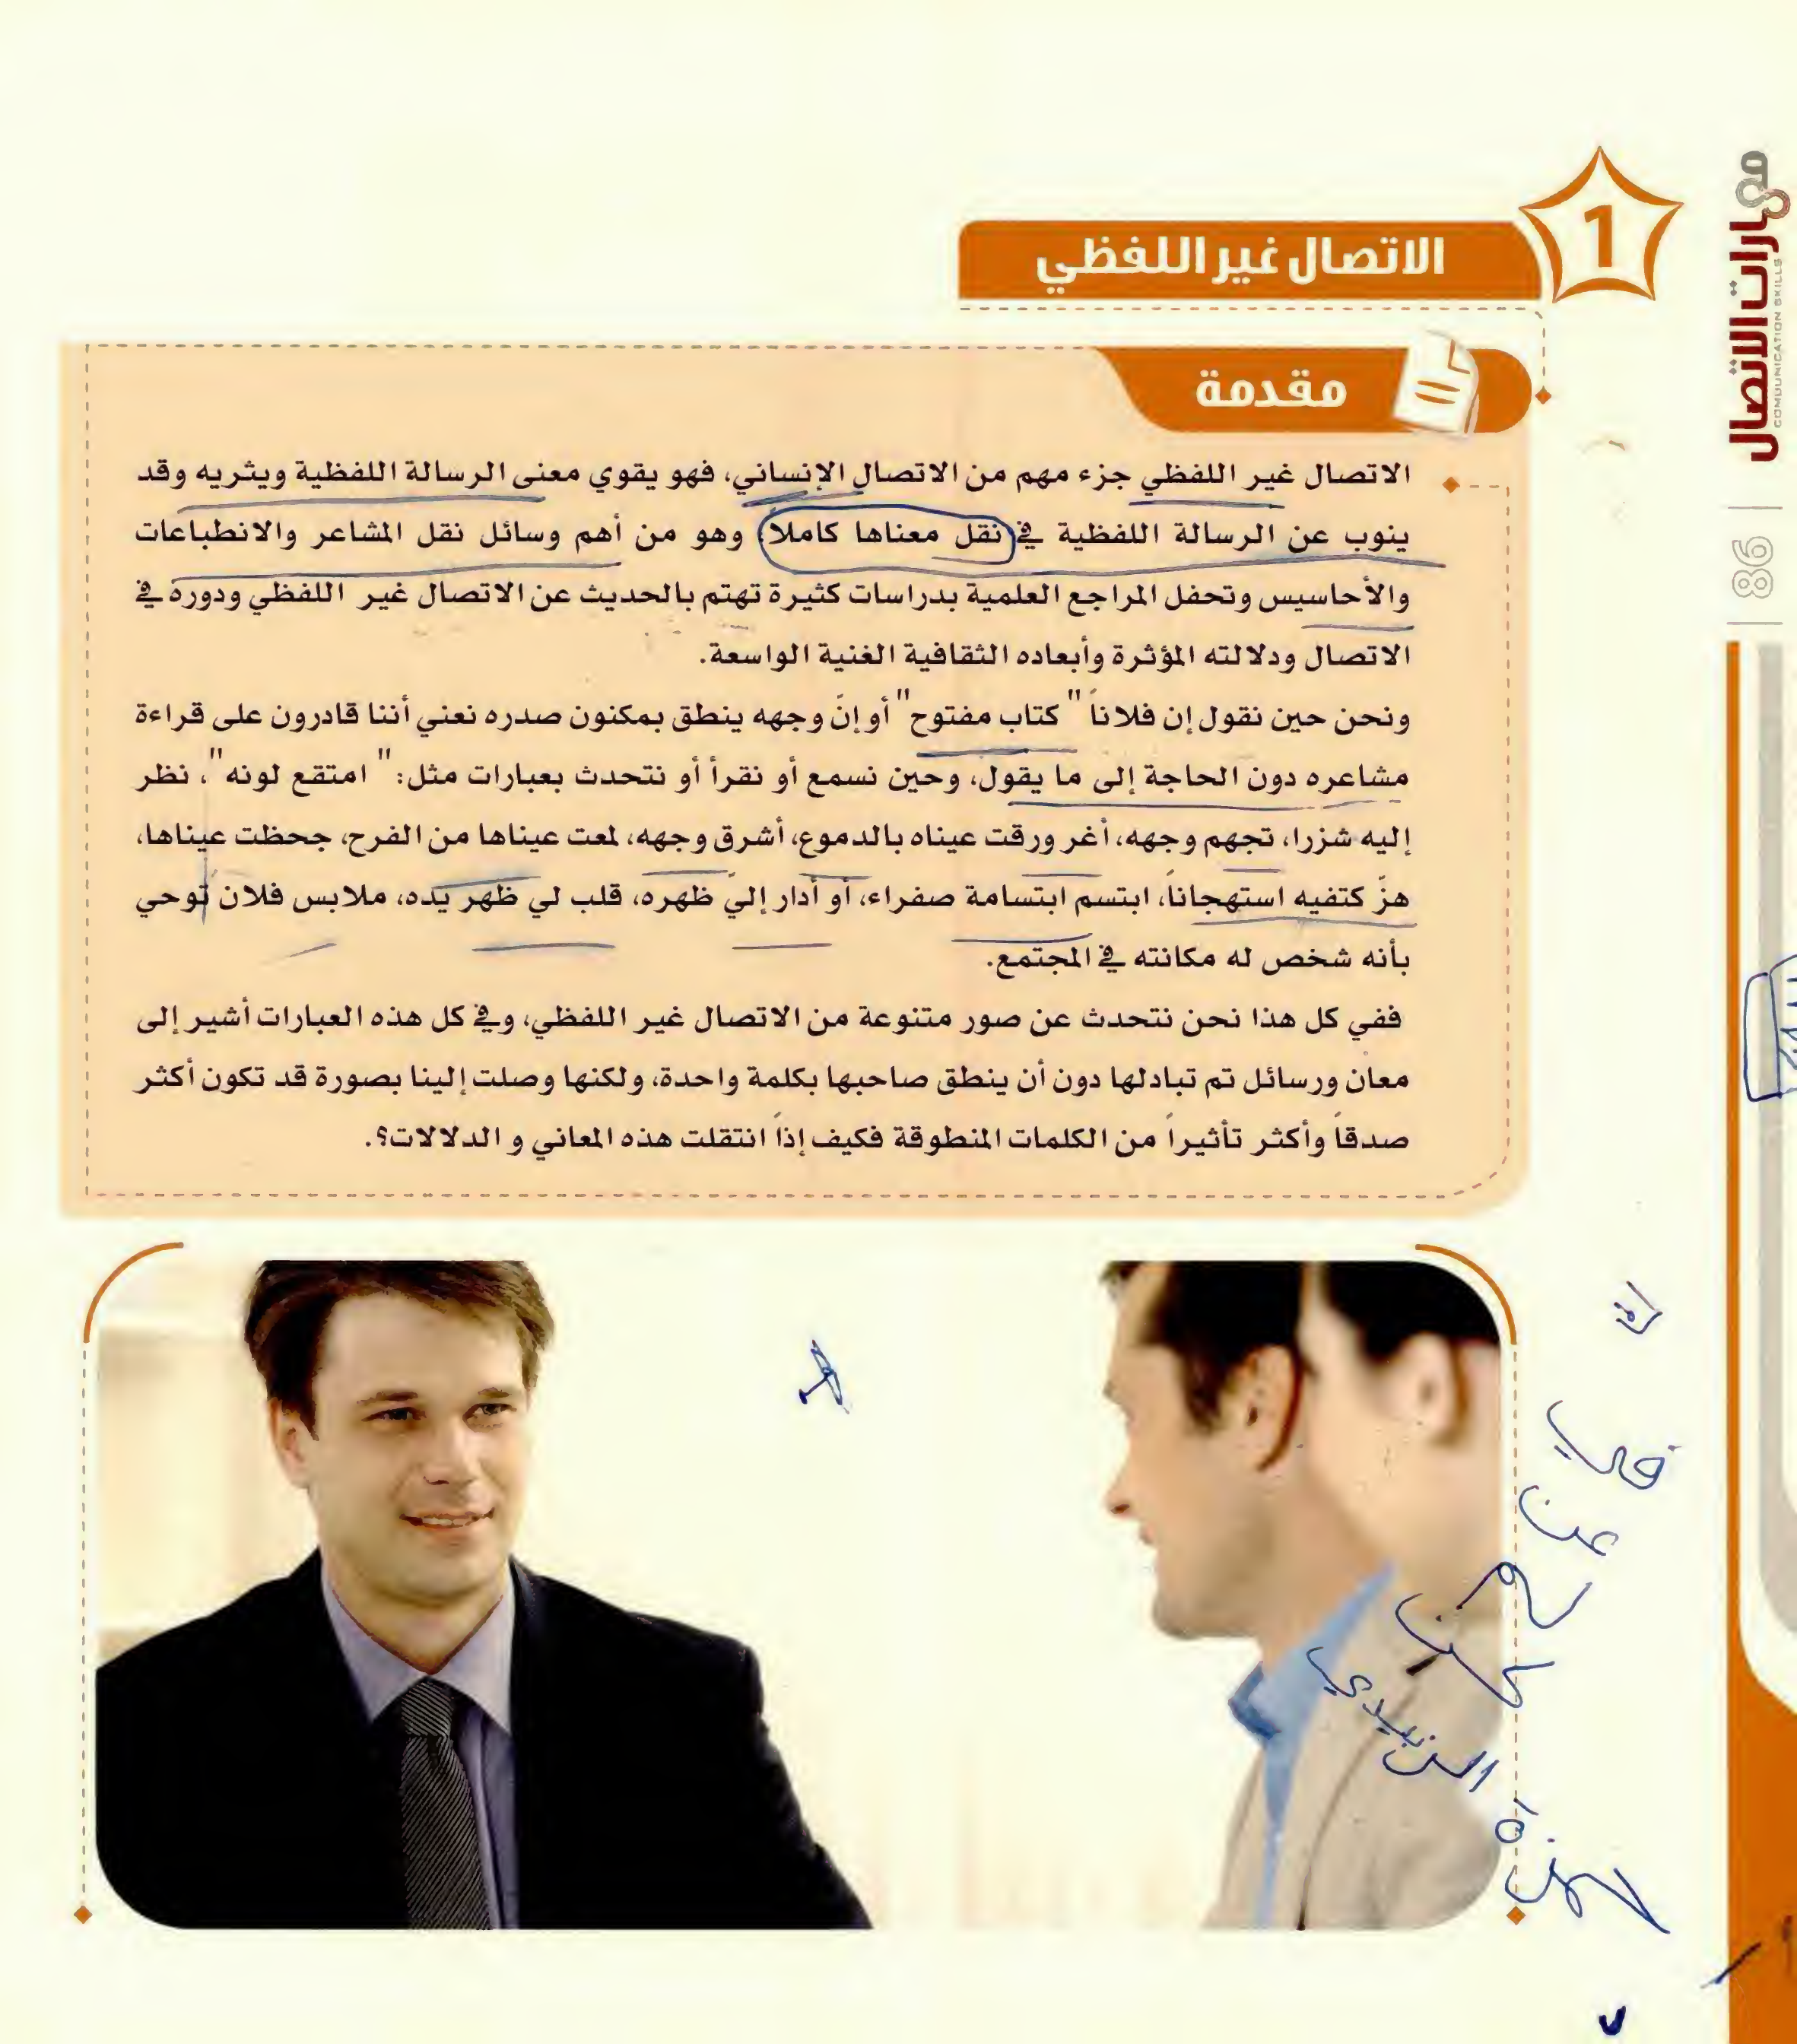 مهارات الاتصال
COMMUNICATION SKILLS
86
1
الاتصال غير اللفظي
مقدمة
الاتصال غير اللفظي جزء مهم من الاتصال الإنساني، فهو يقوي معنى الرسالة اللفظية ويثريه وقد
ينوب عن الرسالة اللفظية في نقل معناها كاملا، وهو من أهم وسائل نقل المشاعر والانطباعات
والأحاسيس وتحفل المراجع العلمية بدراسات كثيرة تهتم بالحديث عن الاتصال غير اللفظي ودوره في
الاتصال ودلالته المؤثرة وأبعاده الثقافية الغنية الواسعة.
ونحن حين نقول إن فلاناً " كتاب مفتوح" أو إنّ وجهه ينطق بمكنون صدره نعني أننا قادرون على قراءة
مشاعره دون الحاجة إلى ما يقول، وحين نسمع أو نقرأ أو نتحدث بعبارات مثل: " امتقع لونه"، نظر
إليه شزرا، تجهم وجهه، أغر ورقت عيناه بالدموع، أشرق وجهه، لمعت عيناها من الفرح، جحظت عيناها،
هزّ كتفيه استهجاناً، ابتسم ابتسامة صفراء، أو أدار إليّ ظهره، قلب لي ظهر يده، ملابس فلان توحي
بأنه شخص له مكانته في المجتمع.
ففي كل هذا نحن نتحدث عن صور متنوعة من الاتصال غير اللفظي، وفي كل هذه العبارات أشير إلى
معان ورسائل تم تبادلها دون أن ينطق صاحبها بكلمة واحدة، ولكنها وصلت إلينا بصورة قد تكون أكثر
صدقاً وأكثر تأثيراً من الكلمات المنطوقة فكيف إذاً انتقلت هذه المعاني و الدلالات؟.
في
عن
الزبيدي